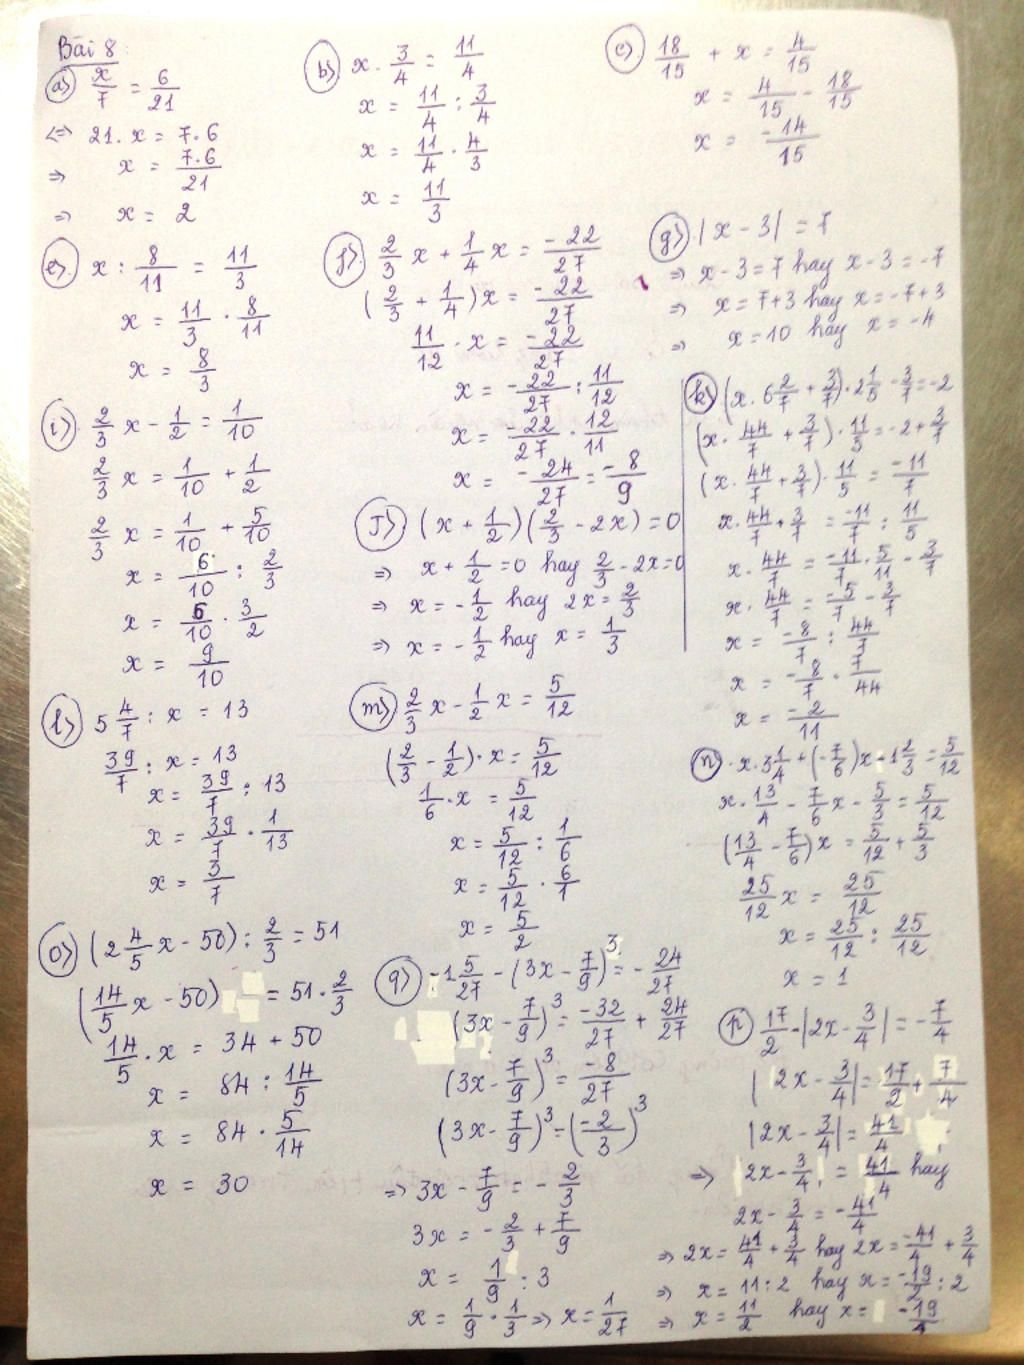 Bài 8
a) x/7 = 6/21
<=> 21. x = 7.6
=> x = 7.6/21
=> x = 2
b) x . 3/4 = 11/4
x = 11/4 : 3/4
x = 11/4 . 4/3
x = 11/3
c) 18/15 + x = 4/15
x = 4/15 - 18/15
x = -14/15
e) x : 8/11 = 11/3
x = 11/3 . 8/11
x = 8/3
f) 2/3 x + 1/4 x = -22/27
(2/3 + 1/4)x = -22/27
11/12 . x = -22/27
x = -22/27 : 11/12
x = -22/27 . 12/11
x = -24/27 = -8/9
g) |x - 3| = 7
=> x - 3 = 7 hay x - 3 = -7
=> x = 7+3 hay x = -7+3
=> x = 10 hay x = -4
i) 2/3 x - 1/2 = 1/10
2/3 x = 1/10 + 1/2
2/3 x = 1/10 + 5/10
x = 6/10 : 2/3
x = 6/10 . 3/2
x = 9/10
J) (x + 1/2)(2/3 - 2x) = 0
=> x + 1/2 = 0 hay 2/3 - 2x = 0
=> x = -1/2 hay 2x = 2/3
=> x = -1/2 hay x = 1/3
k) (x . 6 2/7 + 3/7) . 2 1/5 - 3/7 = -2
(x . 44/7 + 3/7) . 11/5 = -2 + 3/7
(x . 44/7 + 3/7) . 11/5 = -11/7
x . 44/7 + 3/7 = -11/7 : 11/5
x . 44/7 = -11/7 . 5/11 - 3/7
x . 44/7 = -5/7 - 3/7
x = -8/7 : 44/7
x = -8/7 . 7/44
x = -2/11
l) 5 4/7 : x = 13
39/7 : x = 13
x = 39/7 : 13
x = 39/7 . 1/13
x = 3/7
m) 2/3 x - 1/2 x = 5/12
(2/3 - 1/2) . x = 5/12
1/6 . x = 5/12
x = 5/12 : 1/6
x = 5/12 . 6/1
x = 5/2
n) x . 3 1/4 + (-7/6)x - 1 2/3 = 5/12
x . 13/4 - 7/6 x - 5/3 = 5/12
(13/4 - 7/6)x = 5/12 + 5/3
25/12 x = 25/12
x = 25/12 : 25/12
x = 1
o) (2 4/5 x - 50) : 2/3 = 51
(14/5 x - 50) = 51 . 2/3
14/5 . x = 34 + 50
x = 84 : 14/5
x = 84 . 5/14
x = 30
q) -1 5/27 - (3x - 7/9)³ = -24/27
(3x - 7/9)³ = -32/27 + 24/27
(3x - 7/9)³ = -8/27
(3x - 7/9)³ = (-2/3)³
=> 3x - 7/9 = -2/3
3x = -2/3 + 7/9
x = 1/9 : 3
x = 1/9 . 1/3 => x = 1/27
p) 17/2 - |2x - 3/4| = -7/4
|2x - 3/4| = 17/2 + 7/4
|2x - 3/4| = 41/4
=> 2x - 3/4 = 41/4 hay
2x - 3/4 = -41/4
=> 2x = 41/4 + 3/4 hay 2x = -41/4 + 3/4
=> x = 11 : 2 hay x = -19/2 : 2
=> x = 11/2 hay x = -19/4